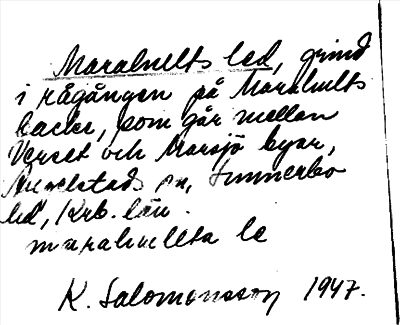 Maralhults led, grind
i rågången på Maralhults
backe, som går mellan
Verset och Marsjö byar,
Annelstads sn, Sunnerbo
hd, Krb. län.
maralhullta le
K. Salomonsson 1947.